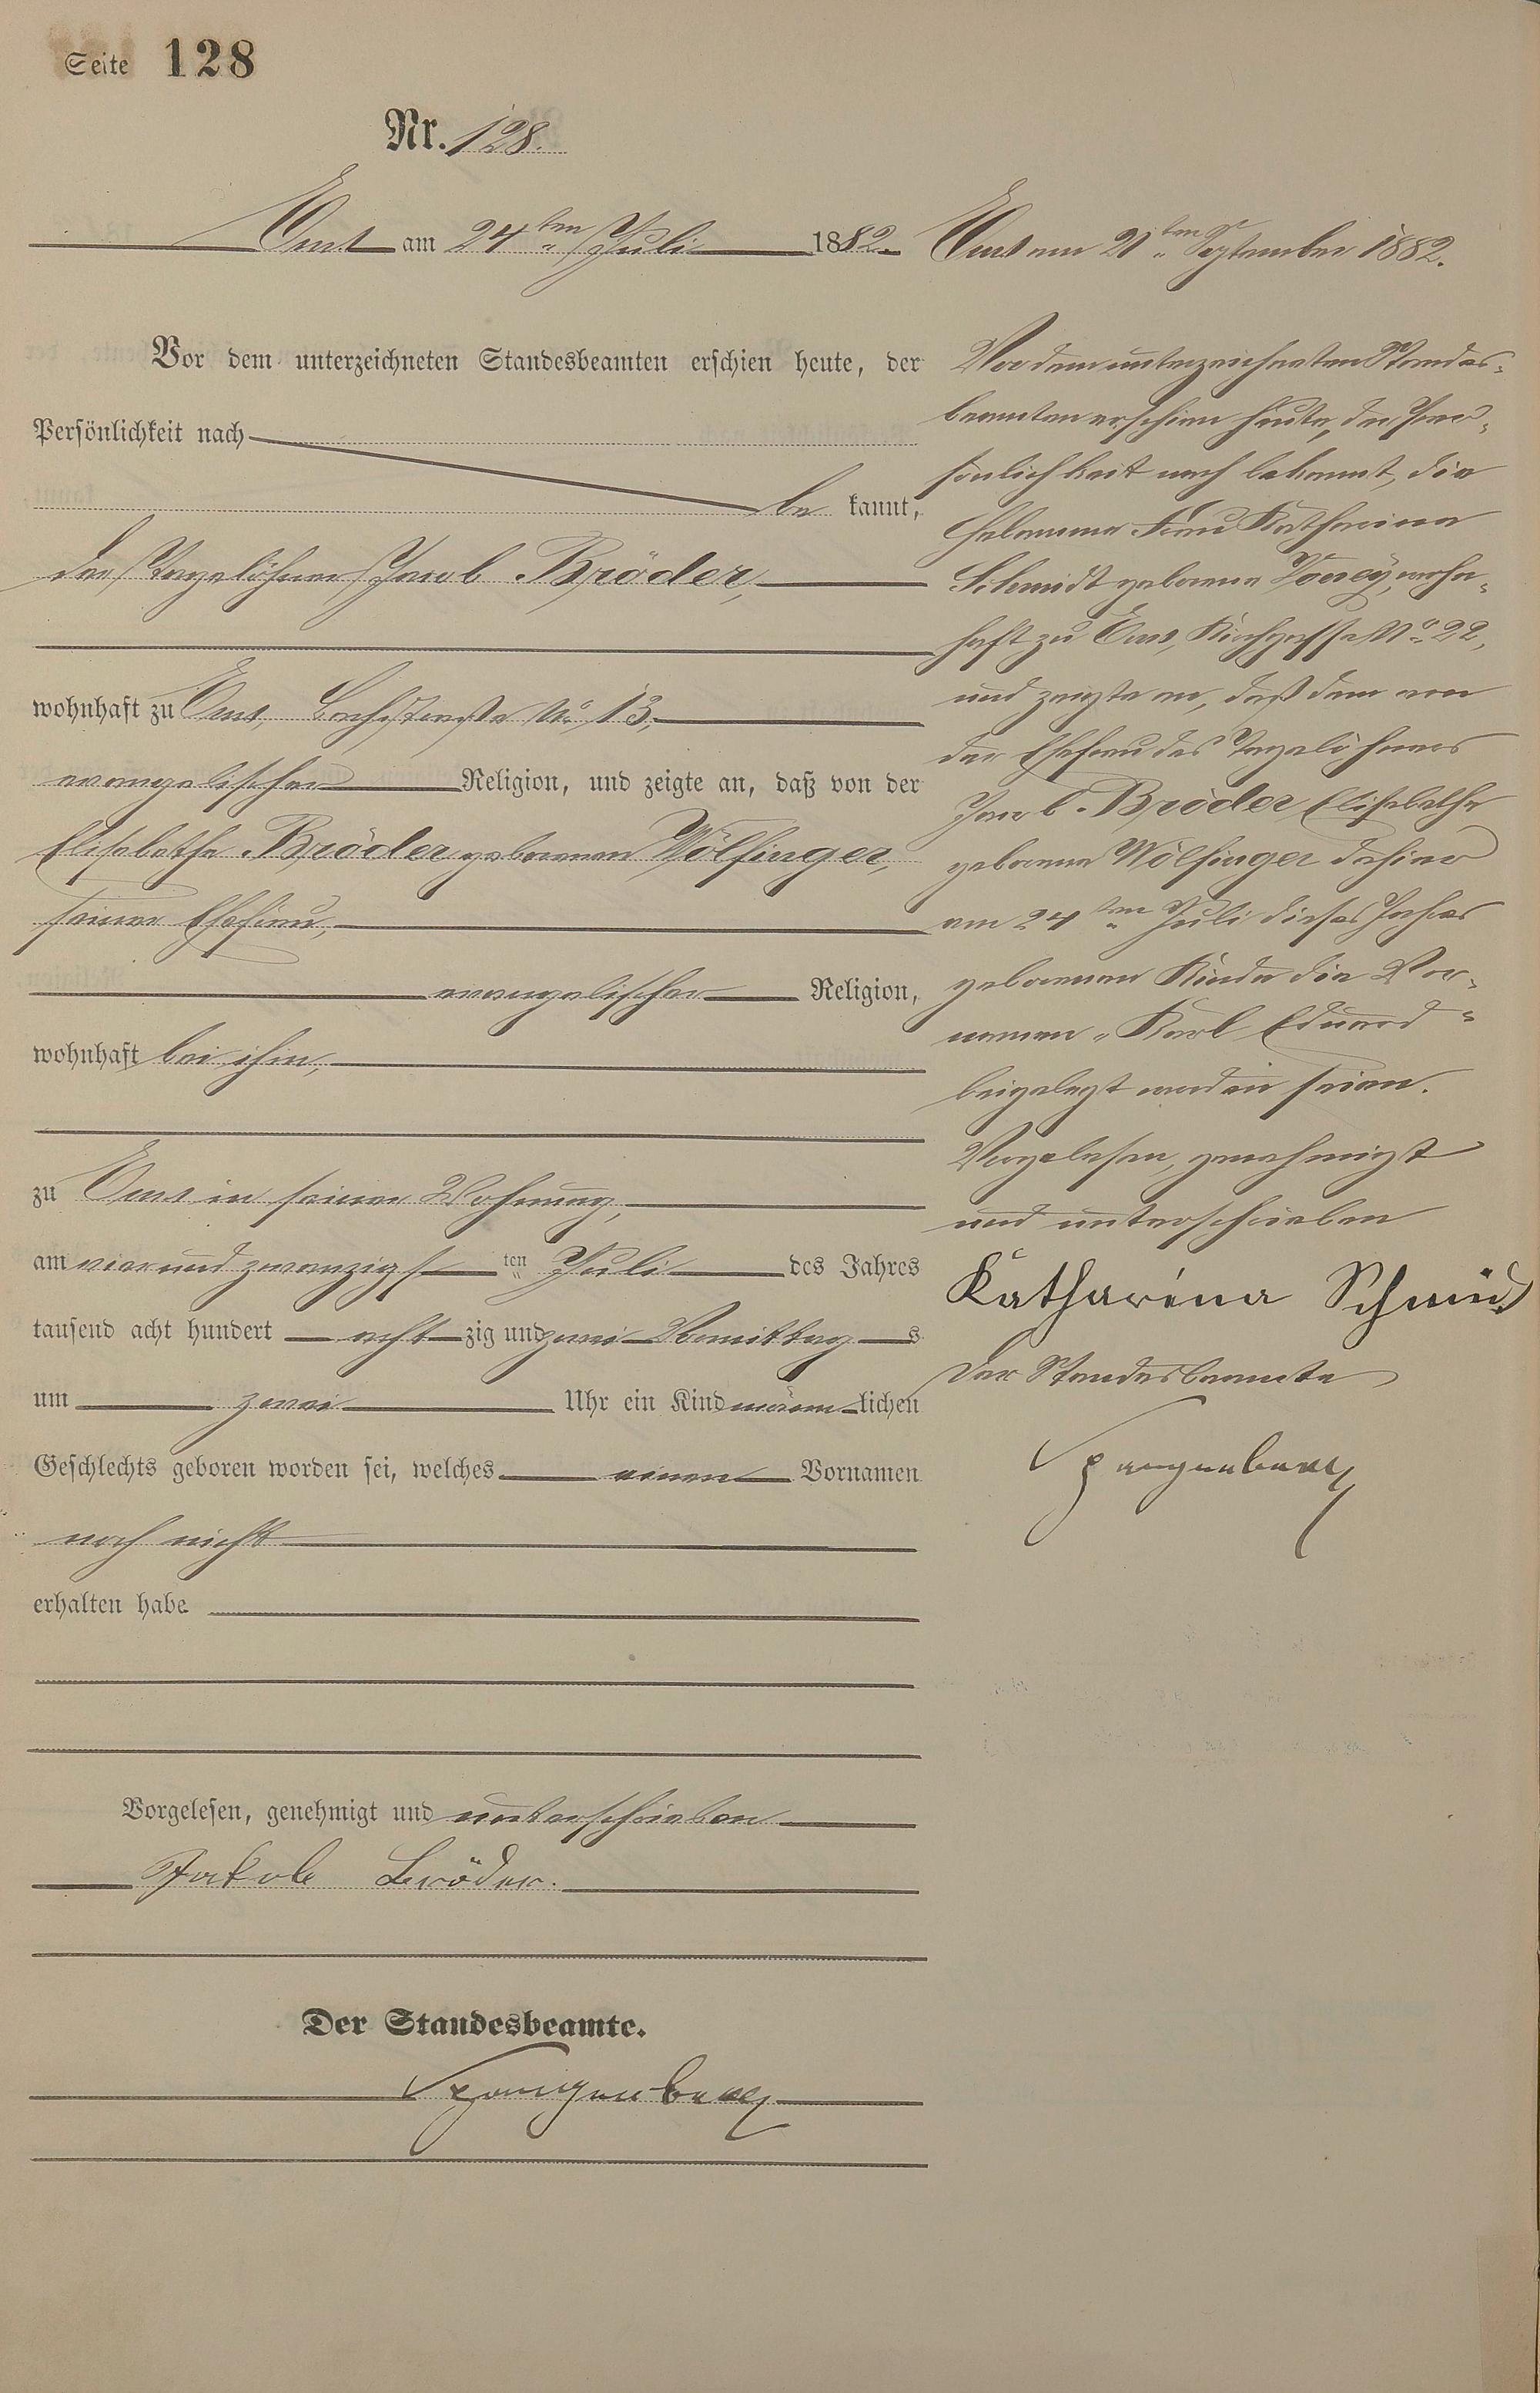 Seite 128
Nr. 128.
Ems am 24ten Juli 1882.
Vor dem unterzeichneten Standesbeamten erschien heute, der
Persönlichkeit nach
be kannt,
der Tagelöhner Jacob Bröder,
wohnhaft zu Ems, Bachstraße No 13,
evangelischer Religion, und zeigte an, daß von der
Elisabethe Bröder geborenen Wölfinger,
seiner Ehefrau,
evangelischer Religion,
wohnhaft bei ihm,
zu Ems in seiner Wohnung,
am vier und zwanzigsten Juli des Jahres
tausend acht hundert acht zig und zwei Vormittags
um zwei Uhr ein Kind männlichen
Geschlechts geboren worden sei, welches einen Vornamen
noch nicht
erhalten habe
Vorgelesen, genehmigt und unterschrieben
Jakob Bröder.
Der Standesbeamte.
Spangenberg
Ems am 21ten September 1882.
Vor dem unterzeichneten Standes-
beamten erschien heute, der Per-
sönlichkeit nach bekannt, die
Hebamme Frau Katharina
Schmidt geborene, wohn-
haft zu Ems, Kirchgasse No 22,
und zeigte an, daß dem von
der Ehefrau des Tagelöhners
Jacob Bröder Elisabethe
geborene Wölfinger dahier
am 24ten Juli dieses Jahres
geborenen Kinde die Vor-
namen „Karl Eduard"
beigelegt worden seien.
Vorgelesen, genehmigt
und unterschrieben
Katharina Schmidt
Der Standesbeamte
Spangenberg